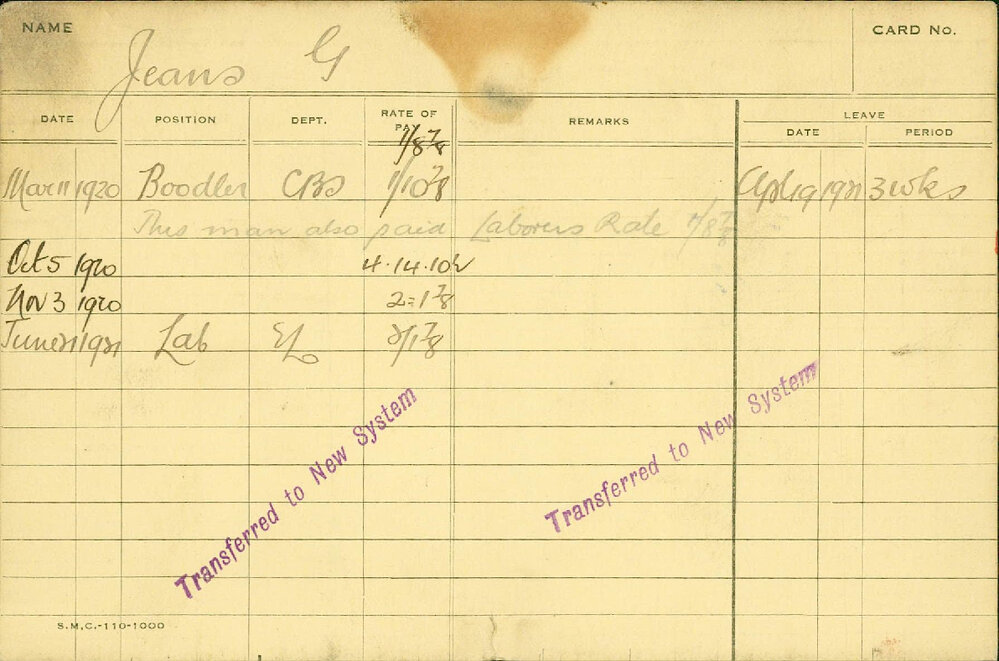 NAME Jeans G CARD No.
DATE POSITION DEPT. RATE OF PAY REMARKS LEAVE
DATE PERIOD
1/8 7/8
Mar 11 1920 Boodler CBS 1/10 7/8 Apl 19 1921 3 wks
This man also paid Laborers Rate 1/8 7/8
Oct 5 1920 4.14.10½
Nov 3 1920 2=1 7/8
June 21 1921 Lab EL 2/1 7/8
Transferred to New System
Transferred to New System
S.M.C.-110-1000